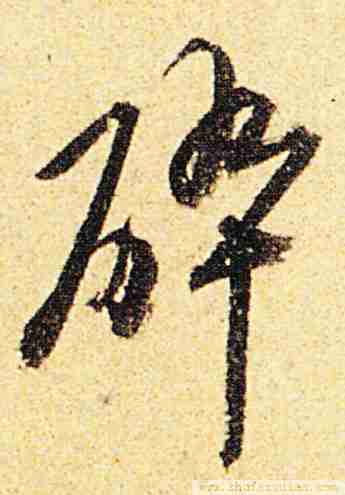 碎
www.shufazidian.com